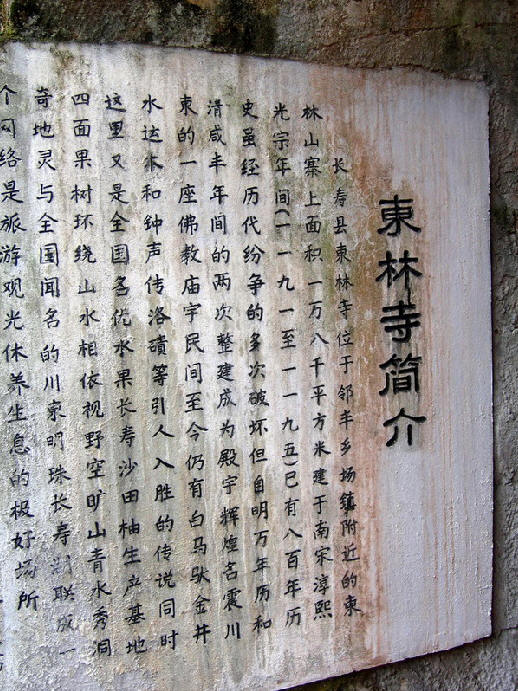 東林寺简介
长寿县東林寺位于邻丰乡场镇附近的東
林山寨上面积一万八千平方米建于南宋淳熙
光宗年间(一一九一至一一九五)已有八百年历
史虽经历代纷争的多次破坏但自明万年历和
清咸丰年间的两次整建成为殿宇辉煌名震川
東的一座佛教庙宇民间至今仍有白马驮金井
水达木和钟声传洛碛等引人入胜的传说同时
这里又是全国名优水果长寿沙田柚生产基地
四面果树环绕山水相依视野空旷山青水秀洞
奇地灵与全国闻名的川東明珠长寿湖联成一
个网络是旅游观光休养生息的极好场所